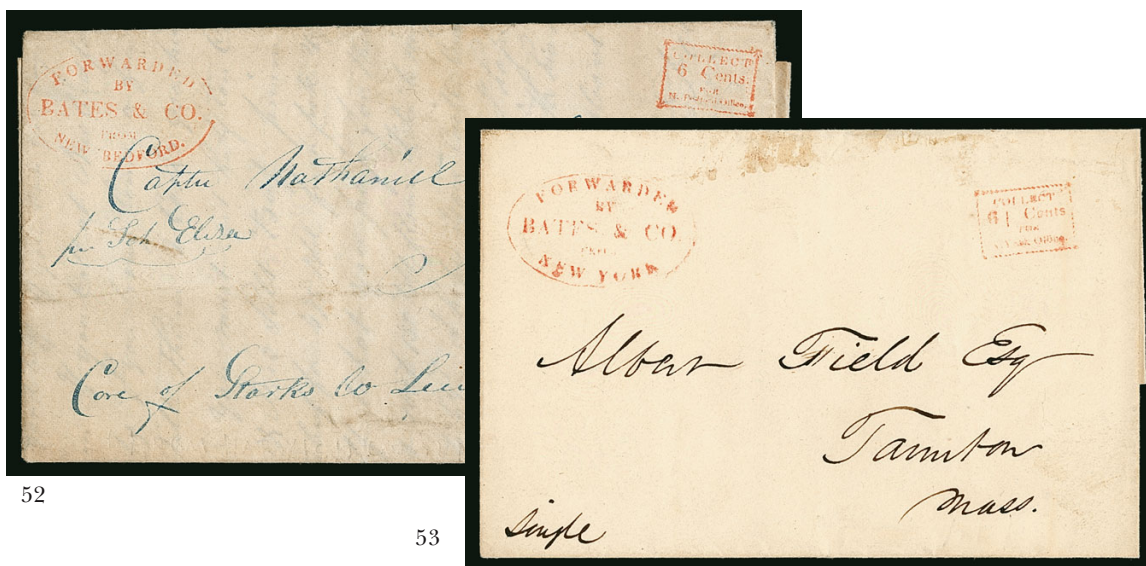 FORWARDED
BY
BATES & CO.
FROM
NEW BEDFORD.
COLLECT
6 Cents.
FOR
Office.
Captn Nathaniel
pr Sch Eliza
Care of Starks
52
FORWARDED
BY
BATES & CO.
FROM
NEW YORK
COLLECT
6¼ Cents
FOR
Office.
Albert Field Esq
Taunton
Mass.
Single
53